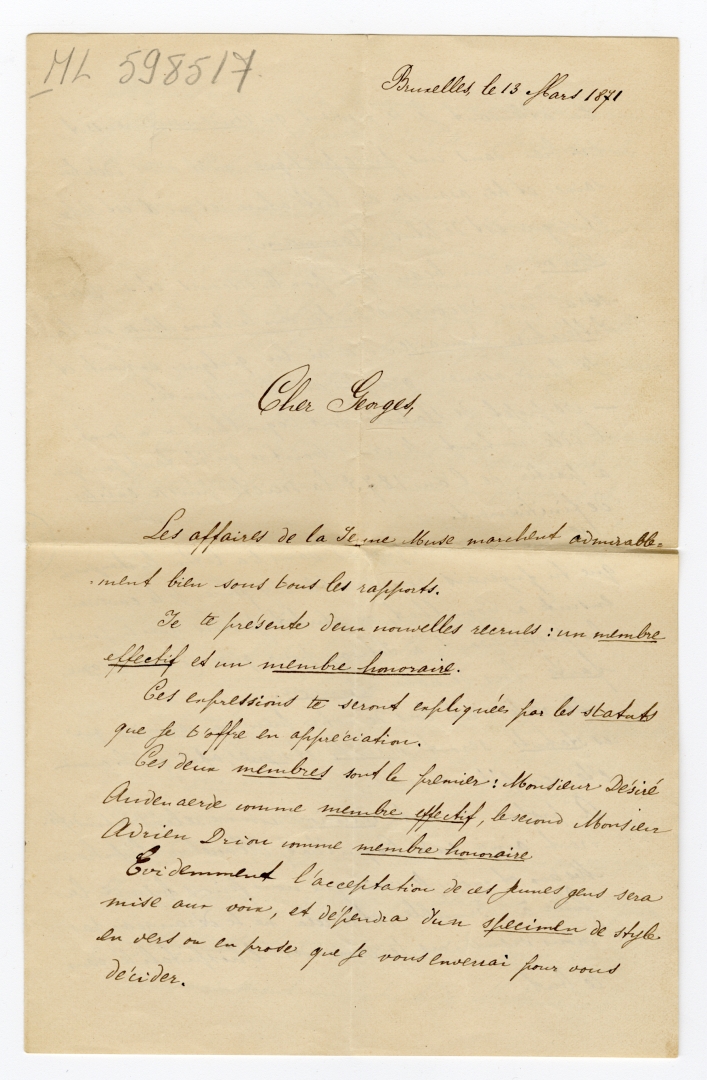 ML 598517
Bruxelles, le 13 Mars 1871
Cher Georges,
Les affaires de la Jeune Muse marchent admirable=
-ment bien sous tous les rapports.
Je te présente deux nouvelles recrues : un membre
effectif et un membre honoraire.
Ces expressions te seront expliquées par les statuts
que je t'offre en appréciation.
Ces deux membres sont le premier : Monsieur Désiré
Audenaerde comme membre effectif, le second Monsieur
Adrien Driou comme membre honoraire
Evidemment l'acceptation de ces jeunes gens sera
mise aux voix, et dépendra d'un specimen de style
en vers ou en prose que je vous enverrai pour vous
décider.